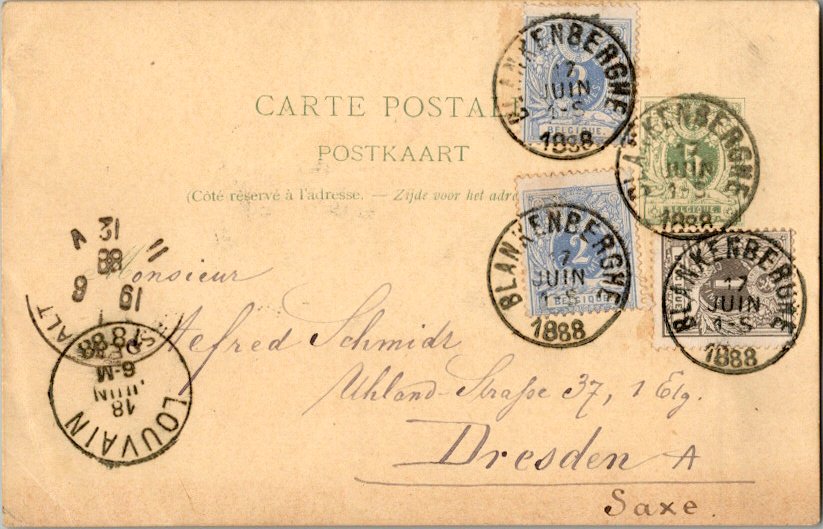 CARTE POSTAL
POSTKAART
(Côté réservé à l'adresse. — Zijde voor het adre
BLANKENBERGHE
17
JUIN
1-S
1888
2
BELGIQUE
BLANKENBERGHE
17
JUIN
1-S
1888
5
BELGIQUE
BLANKENBERGHE
17
JUIN
1-S
1888
2
BELGIQUE
BLANKENBERGHE
17
JUIN
1-S
1888
Monsieur
Alfred Schmidt
Uhland-Straße 37, 1 Etg.
Dresden A
Saxe.
LOUVAIN
18
JUIN
6-M
1888
ALT
19
6
88